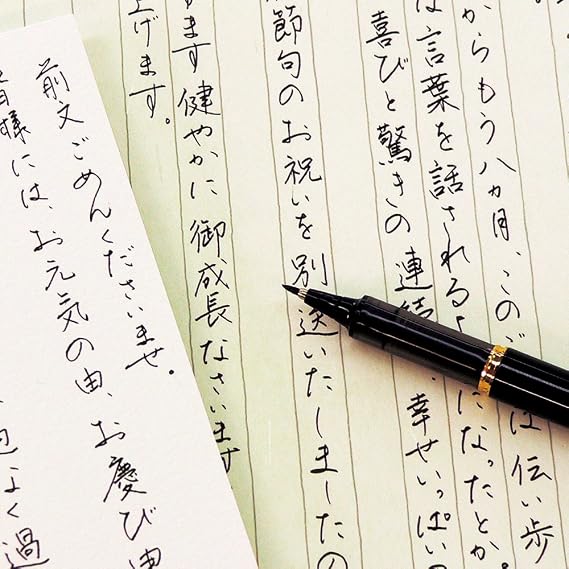 からもう八ヵ月、この
は伝い歩
は言葉を話される
になったとか。
喜びと驚きの連続
、幸せいっぱいの
節句のお祝いを別送いたしましたの
ます健やかに御成長なさいます
上げます。
前文ごめんくださいませ。
皆様には、お元気の由、お慶び申
過